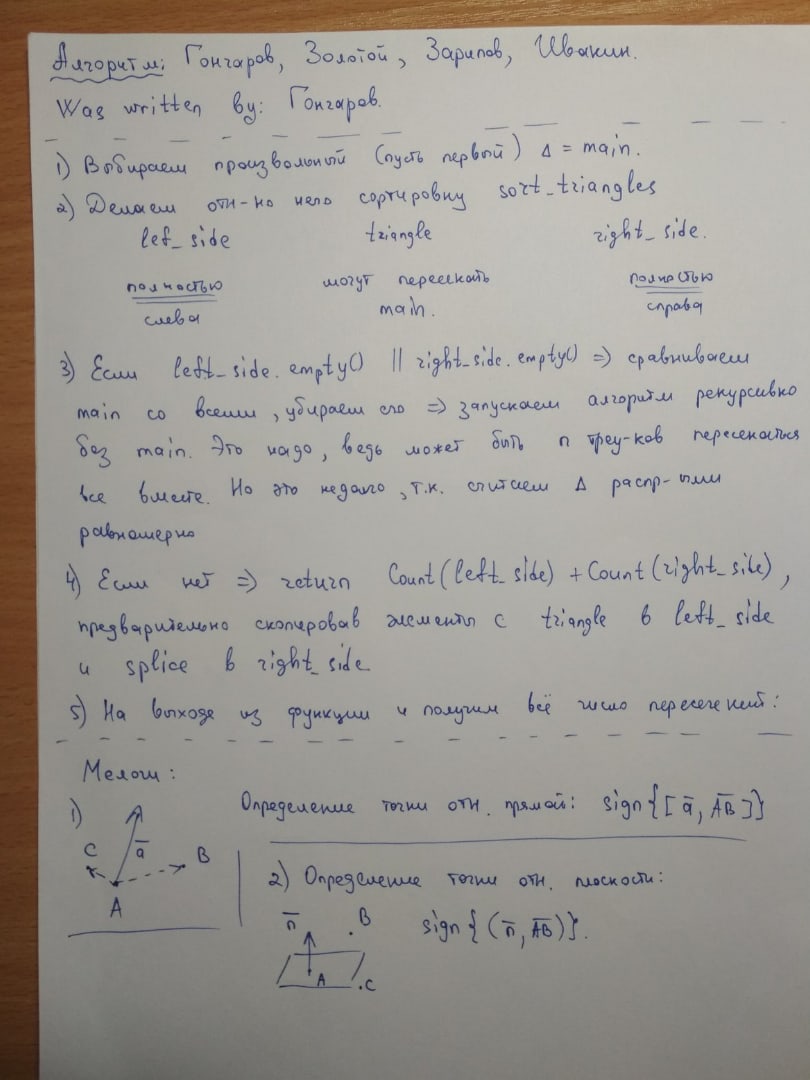 Алгоритм: Гончаров, Золотой, Зарипов, Ивакин.
Was written by: Гончаров.
1) Выбираем произвольный (пусть первый) Δ = main.
2) Делаем отн-но него сортировку sort_triangles
lef_side triangle right_side.
полностью могут пересекать полностью
слева main. справа
3) Если left_side.empty() || right_side.empty() => сравниваем
main со всеми, убираем его => запускаем алгоритм рекурсивно
без main. Это надо, ведь может быть n треу-ков пересекаться
все вместе. Но это недолго, т.к. считаем Δ распр-ыми
равномерно
4) Если нет => return Count(left_side) + Count(right_side),
предварительно скопировав элементы с triangle в left_side
и splice в right_side
5) На выходе из функции и получим всё число пересечений:
Мелочи:
1) Определение точки отн. прямой: sign{[a̅, A̅B̅]}
C a̅ B
A
2) Определение точки отн. плоскости:
n̅ B sign{(n̅, A̅B̅)}.
A C